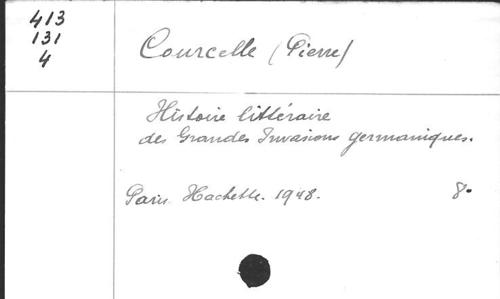 413
131
4
Courcelle (Pierre)
Histoire littéraire
des Grandes Invasions germaniques.
Paris Hachette. 1948. 8°